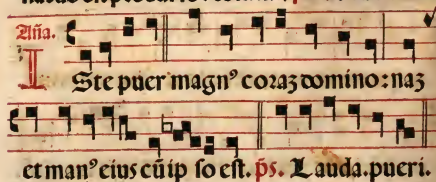 Aña.
Iste puer magnꝰ coraꝫ domino: naꝫ
et manꝰ eius cũ ip so est. p̃s. Lauda.pueri.